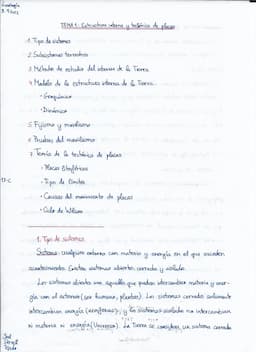 TEMA 1: Estructura interna y tectónica de placas
1. Tipo de sistemas
2. Subsistemas terrestres
3. Métodos de estudio del interior de la Tierra
4. Modelos de la estructura interna de la Tierra
· Geoquímico
· Dinámico
5. Fijismo y movilismo
6. Pruebas del movilismo
7. Teoría de la tectónica de placas
· Placas litosféricas
· Tipo de límites
· Causas del movimiento de placas
· Ciclo de Wilson
1. Tipo de sistemas
Sistema: cualquier entorno con materia y energía en el que suceden
acontecimientos. Existen sistemas abiertos, cerrados y aislados.
Los sistemas abiertos son aquellos que pueden intercambiar materia y ener-
gía con el entorno (ser humano, plantas). Los sistemas cerrados solamente
intercambian energía, y los sistemas aislados no intercambian
ni materia ni energía (Universo). La Tierra se considera un sistema cerrado